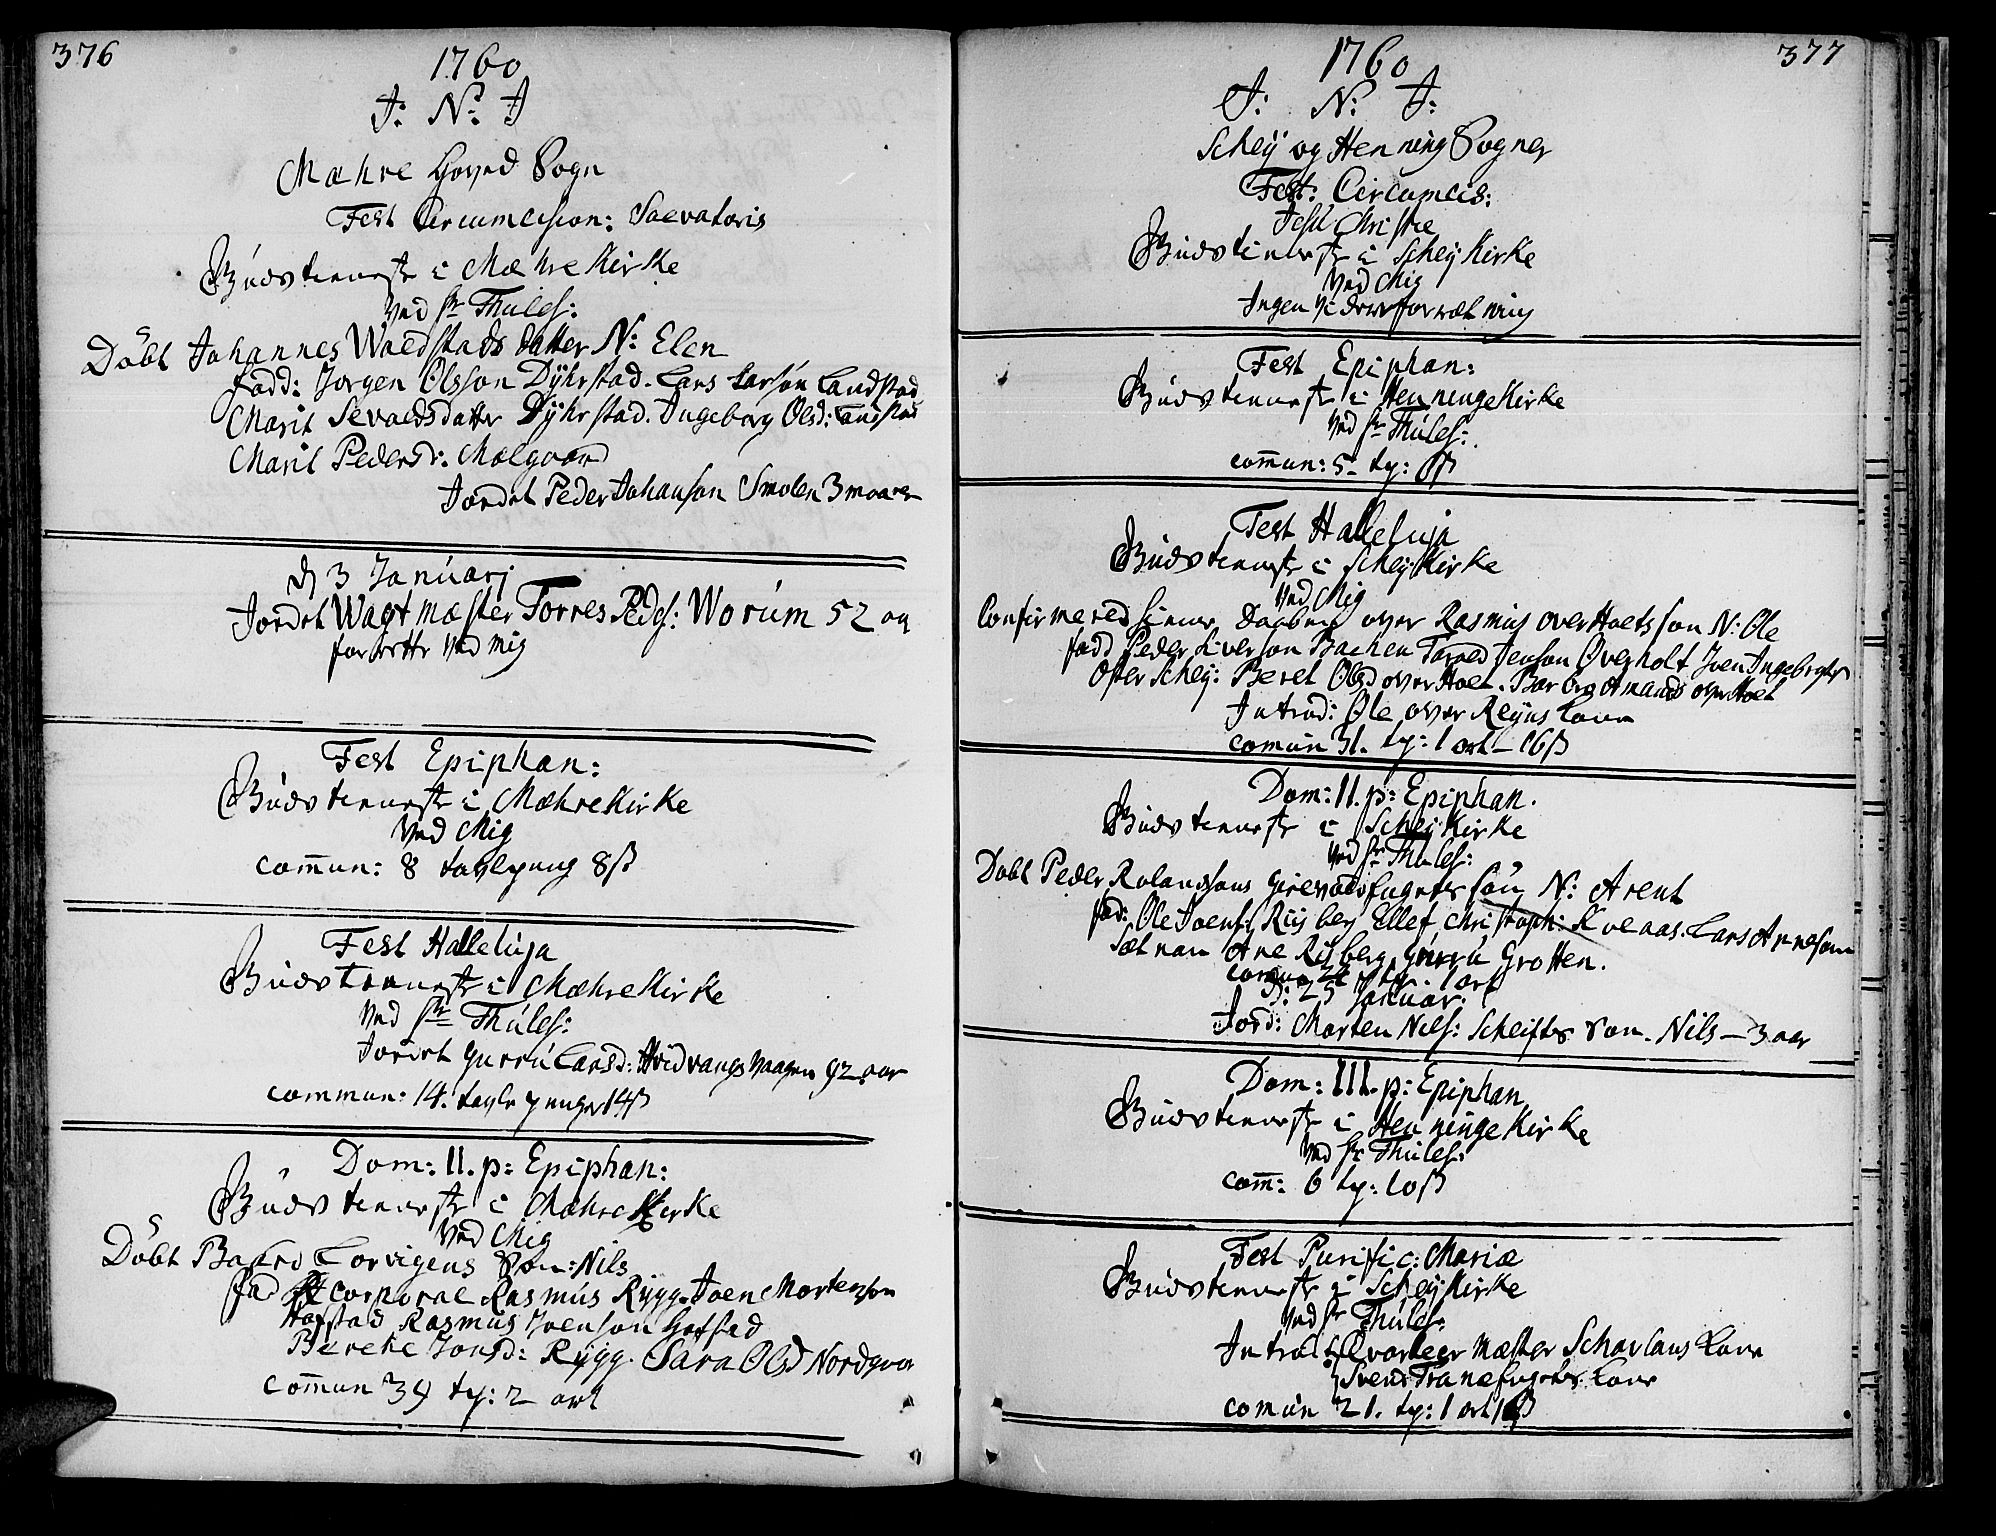 376
1760
J: N: J
Mæhre Hoved Sogn
Fest Circumcision: Salvatoris
Gudstienest i Mæhre Kirke
Ved Hr Thules:
Döbt Johannes Waldstads datter N: Elen
fadd: Jörgen Olsson Dÿhrstad. Lars Larsön Landstad
Marit Sevaldsdatter Dÿhrstad. Ingeborg Olsd:
Marit Pedersdr: Mælgaard
Jordet Peder Johanson Smolen 3 maaner
d 3 Januarj
Jordet Wagtmæster Torres Peds: Worum 52 aar
forrette ved mig
Fest Epiphan:
Gudstienest i Mæhre Kirke
Ved Mig
comun: 8 tavlepeng 8 ß
Fest Halleluja
Gudstienest i Mæhre Kirke
Ved Hr Thules:
Jordet Gurru Larsd: Hvidvangs Vaagen 92 aar
commun: 14. tavle penger 14 ß
Dom: II. p: Epiphan:
Gudstienest i Mæhre Kirke
Ved Mig
Döbt Baard Lorvigens Sön: Nils
fad Corporal Rasmus Rÿgg. Joen Mortenson
Hofstad Rasmus Joenson Hofstad
Berete Jonsd: Rÿgg. Sara Olsd Nordgvar
comun 34 tp: 2 ort
377
1760
J: N: J:
Scheÿ og Henning Sogner
Fest: Circumcis:
Jesu Christi
Gudstienest i Scheÿ Kirke
Ved Mig
Ingen Videre forretning
Fest Epiphan:
Gudstienest i Henninge Kirke
Ved Hr Thules:
comun: 5 tp: ß
Fest Halleluja
Gudstienest i Scheÿ Kirke
Ved Mig
Confirmered hieme Daaben over Rasmus overHoets son N: Ole
fadd Peder Siverson Bachen Tarald Jenson Øverholt Joen Ingebrigts
Øster Scheÿ: Beret Olsd overHoet. Barbra Amunds overHoet
Introd: Ole over Reÿns kone
comun 31. tp: 1 ort 16 ß
Dom: II. p: Epiphan.
Gudstienest i Scheÿ Kirke
Ved Hr Thules:
Döbt Peder Rolandsons sön N: Arent
fad: Ole Joens: Riisberg Ellef Christoph: Kveaas. Lars Arneson
Sætnan Ane Risberg Gurru Grotten.
comun 1 ort
D: 25 Januar:
Jord: Morten Nils: Scheiftes Sön. Nils – 3 aar
Dom: III. p: Epiphan
Gudstienest i Henninge Kirke
Ved Hr Thules:
com: 6 tp: 10 ß
Fest Purific: Mariæ
Gudstienest i Scheÿ Kirke
Ved Hr Thules:
Introd: Qvarteer Mæster Scharlaus kone
Svend Tranefugets kone
comun 21. tp: 1 ort 16 ß